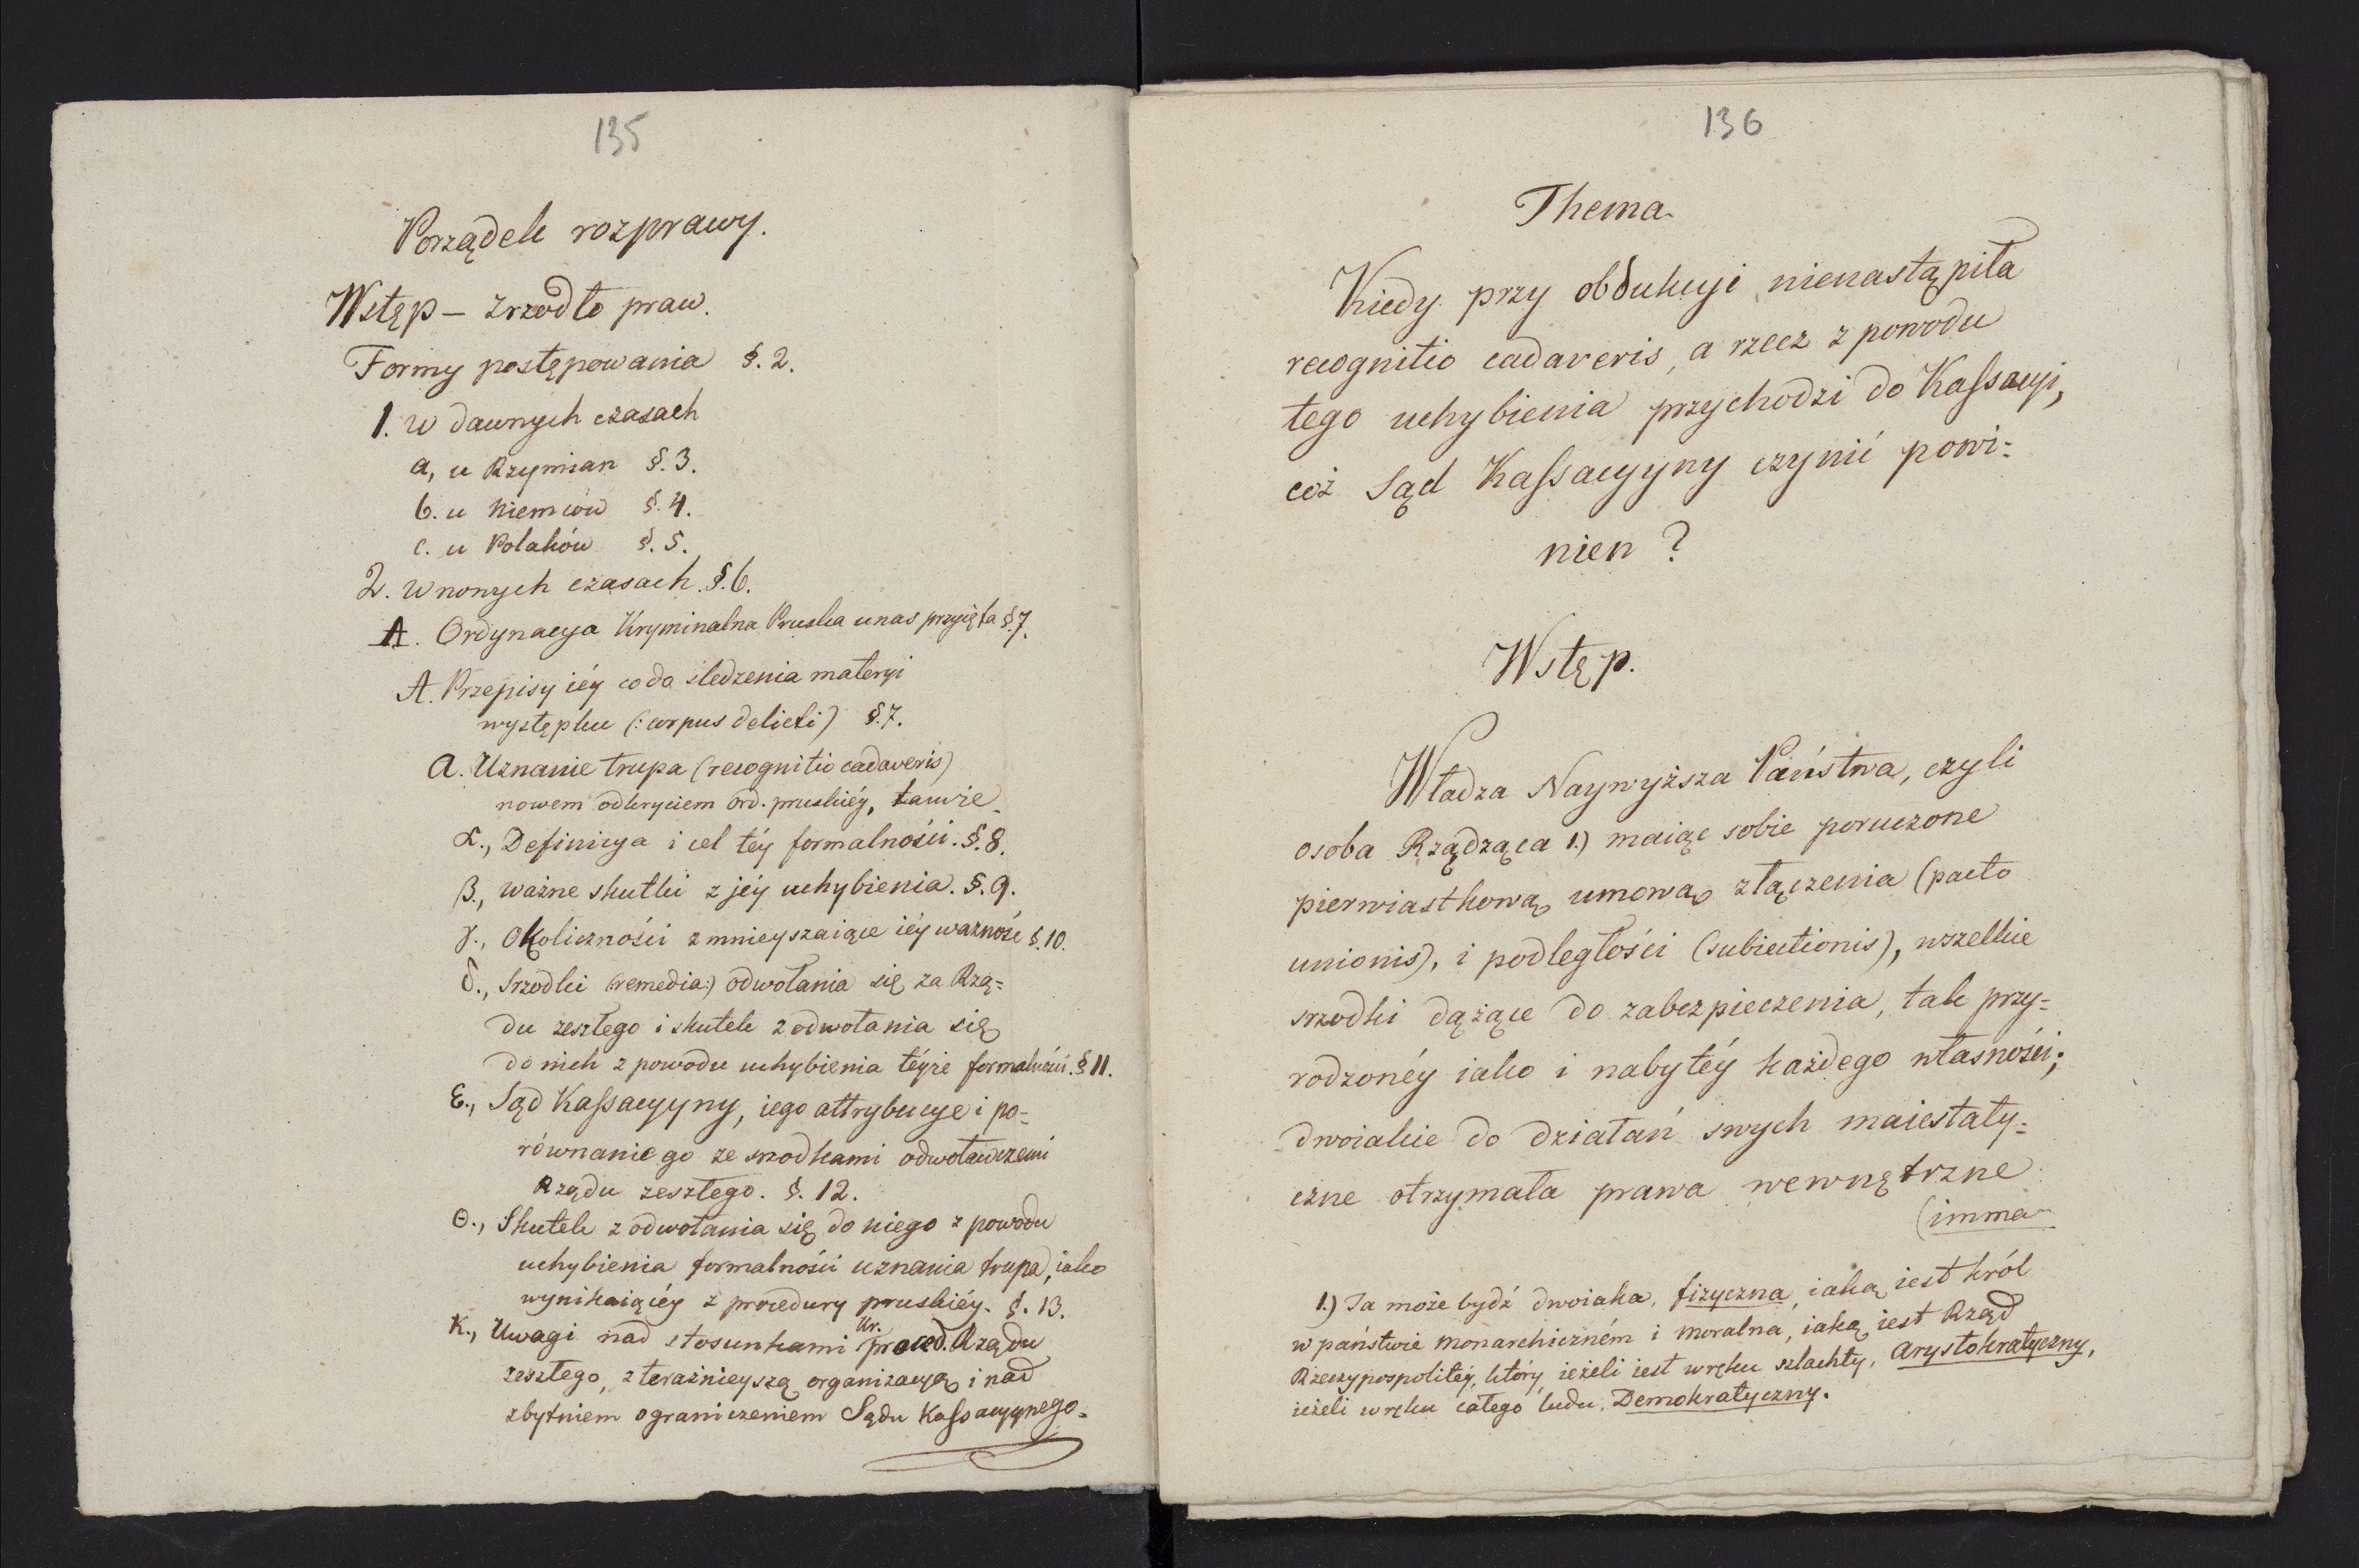 135
Porządek rozprawy.
Wstęp – Zrzodło praw.
Formy postępowania §. 2.
1. w dawnych czasach
a, u Rzymian §. 3.
b. u Niemców §. 4.
c. u Polaków §. 5.
2. w nowych czasach. §. 6.
A. Ordynacya Kryminalna Pruska unas przyięta §. 7.
A. Przepisy iéy co do sledzenia materyi
występku (: corpus delicti) §. 7.
a. Uznanie trupa (recognitio cadaveris)
nowem odkryciem ord. pruskiéy,
α., Definicya i cel téy formalności. §. 8.
β., ważne skutki z jéy uchybienia. §. 9.
γ., Okoliczności zmnieyszaiące iéy ważność §. 10.
δ., Srzodki (:remedia:) odwołania się za Rzą=
du zeszłego i skutek z odwołania się
do nich z powodu uchybienia téyże formalności. § 11.
ε., Sąd Kassacyyny, iego attrybucye i po=
równanie go ze srzodkami odwoławczemi
Rządu zeszłego. §. 12.
Θ., Skutek z odwołania się do niego z powodu
uchybienia formalności uznania trupa, iako
wynikaiącéy z procedury pruskiéy. §. 13.
K., Uwagi nad stosunkami Kr. proced. Rządu
zeszłego, z teraźnieyszą organizacyą i nad
zbytniem ograniczeniem Sądu Kassacyynego.
136
Thema.
Kiedy przy obdukcyi nienastąpiła
recognitio cadaveris, a rzecz z powodu
tego uchybienia przychodzi do Kassacyi,
cóż Sąd Kassacyyny czynić powi=
nien ?
Wstęp.
Władza Naywyższa Państwa, czyli
osoba Rządząca 1.) maiąc sobie poruczone
pierwiastkową umową złączenia (pacto
unionis), i podległości (subiectionis), wszelkie
srzodki dążące do zabezpieczenia, tak przy=
rodzonéy iako i nabytéy każdego własności;
dwoiakie do działań swych maiestaty=
czne otrzymała prawa wewnętrzne
(imma-
1.) Ta może bydź dwoiaka, fizyczna, iaką iest król
w państwie monarchiczném i moralna, iaką iest Rząd
Rzeczypospolitéy, który, ieżeli iest w ręku szlachty, Arystokratyczny,
ieżeli w ręku całego ludu, Demokratyczny.